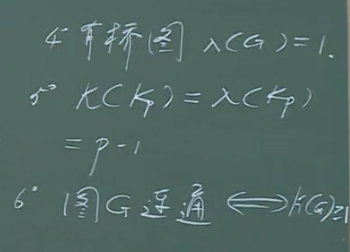 4° 有桥图 λ(G)=1.
5° K(Kp)=λ(Kp)
=p-1
6° 图G连通 ⟺ K(G)≥1